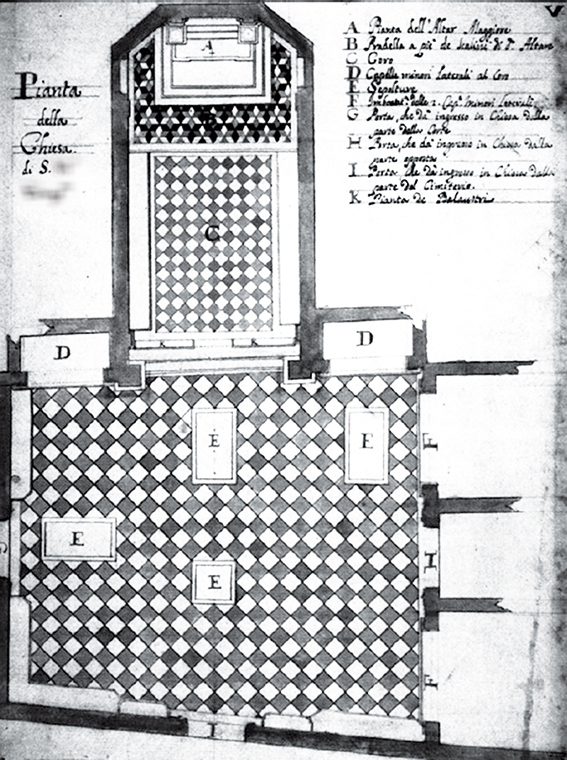 V
Pianta
della
Chiesa
di S.
A Pianta dell'Altar Maggiore
B Predella a piè de scalini di d.º Altare
C Coro
D Capelle minori laterali al Coro
E Sepolture
F delle 2. Cap. minori laterali
G Porta, che dà ingresso in Chiesa dalla
parte della Corte
H Porta che dà ingresso in Chiesa dalla
parte opposta
I Porta che dà ingresso in Chiesa dalla
parte del Cimiterio.
K Pianta de Balaustri
A
B
C
K K
D D
E E
F
E
I
G
E
F